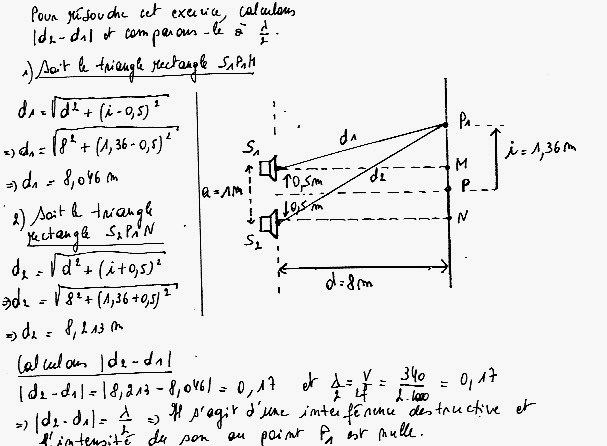 Pour résoudre cet exercice, calculons
|d2-d1| et comparons-le à λ/2.
1) Soit le triangle rectangle S1P1M
d1 = √(d² + (i-0,5)²)
=> d1 = √(8² + (1,36-0,5)²)
=> d1 = 8,046 m
2) Soit le triangle
rectangle S2P1N
d2 = √(d² + (i+0,5)²)
=> d2 = √(8² + (1,36+0,5)²)
=> d2 = 8,213 m
a = 1m
S1
S2
0,5m
0,5m
d1
d2
P1
M
P
N
i = 1,36m
d=8m
Calculons |d2-d1|
|d2-d1| = |8,213 - 8,046| = 0,17 et λ/2 = V/2f = 340/2.1000 = 0,17
=> |d2-d1| = λ/2 => Il s'agit d'une interférence destructive et
l'intensité du son au point P1 est nulle.